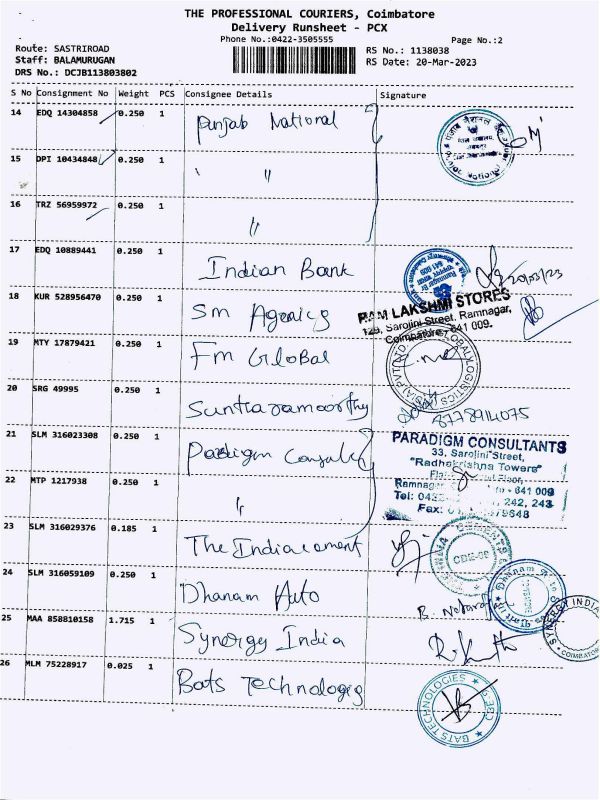 THE PROFESSIONAL COURIERS, Coimbatore
Delivery Runsheet - PCX
Phone No.:0422-3505555
Page No.:2
Route: SASTRIROAD
RS No.: 1138038
Staff: BALAMURUGAN
RS Date: 20-Mar-2023
DRS No.: DCJB113803802
S No Consignment No Weight PCS Consignee Details Signature
14 EDQ 14304858 0.250 1 Punjab National
15 DPI 10434848 0.250 1 "
16 TRZ 56959972 0.250 1 "
17 EDQ 10889441 0.250 1 Indian Bank
20/03/23
18 KUR 528956470 0.250 1 Sm Agencies
RAM LAKSHMI STORES
129, Sarojini Street, Ramnagar,
Coimbatore - 641 009.
19 MTY 17879421 0.250 1 Fm Global
20 SRG 49995 0.250 1 Suntharamoorthy
21 SLM 316023308 0.250 1 Paradigm Consult
PARADIGM CONSULTANTS
33, Sarojini Street,
"Radhakrishna Towers"
Floor,
Ramnagar - 641 009
22 MTP 1217938 0.250 1 "
Tel: 242, 243
Fax:
23 SLM 316029376 0.185 1 The India cement
24 SLM 316059109 0.250 1 Dhanam Auto
Dhanam Auto
25 MAA 858810158 1.715 1 Synergy India
SYNERGY INDIA
COIMBATORE
26 MLM 75228917 0.025 1 Bats Technologies
BATS TECHNOLOGIES
CBE